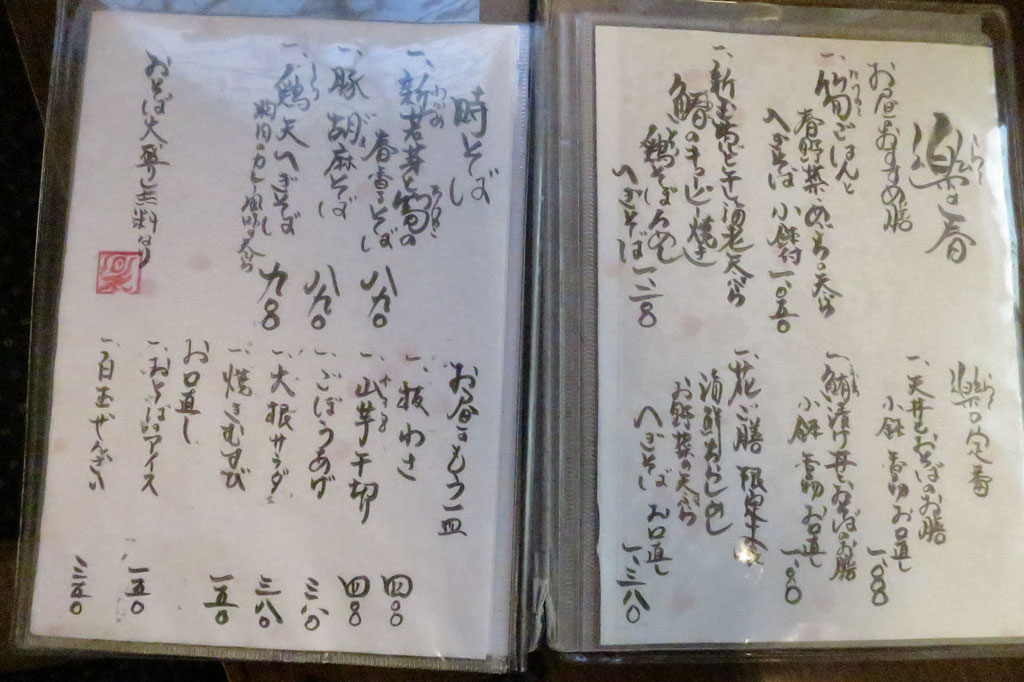 楽の春
らく
お昼のおすすめ膳
一、筍ごはんと
たけのこ
春野菜・めごちの天ぷら
へぎそば 小鉢付 一、〇五〇
干し海老天ぷら
鰆の
焼き
鶏そぼろめし
へぎそば
楽の定番
らく
一、天丼とおそばのお膳
小鉢 香物 お口直し
一、鮪漬け丼とおそばのお膳
小鉢 香物 お口直し
一、花ご膳
海鮮
お野菜の天ぷら
へぎそば お口直し
一、三八〇
時そば
一、新若芽と筍の
わかめ
たけのこ
春香るそば 八九〇
一、豚胡麻そば 八九〇
ごま
一、鶏天へぎそば
とり
胸肉のカレー風味の天ぷら
おそば大盛り無料なり
楽
お昼にもう一皿
一、板わさ 四〇〇
一、山芋千切り
一、ごぼうあげ 三八〇
一、大根サラダ 三八〇
一、焼きむすび 一五〇
お口直し
一、おそばのアイス 一五〇
一、白玉ぜんざい 二五〇